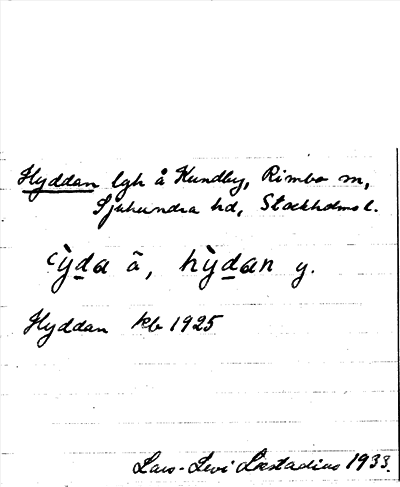 Hyddan lgh å Kundby, Rimbo sn,
Sjuhundra hd, Stockholms l.
ʿỳda ä, hỳdan y.
Hyddan kb 1925
Lars-Levi Læstadius 1933.